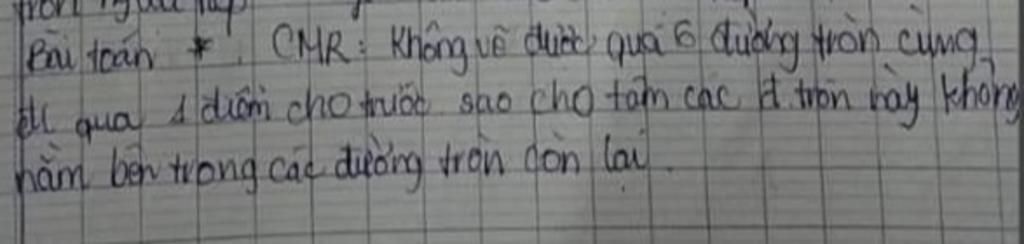 tròn ngoại tiếp
Bài toán * CMR: Không vẽ được quá 6 đường tròn cùng
đi qua 1 điểm cho trước sao cho tâm các đ tròn này không
nằm bên trong các đường tròn còn lại.